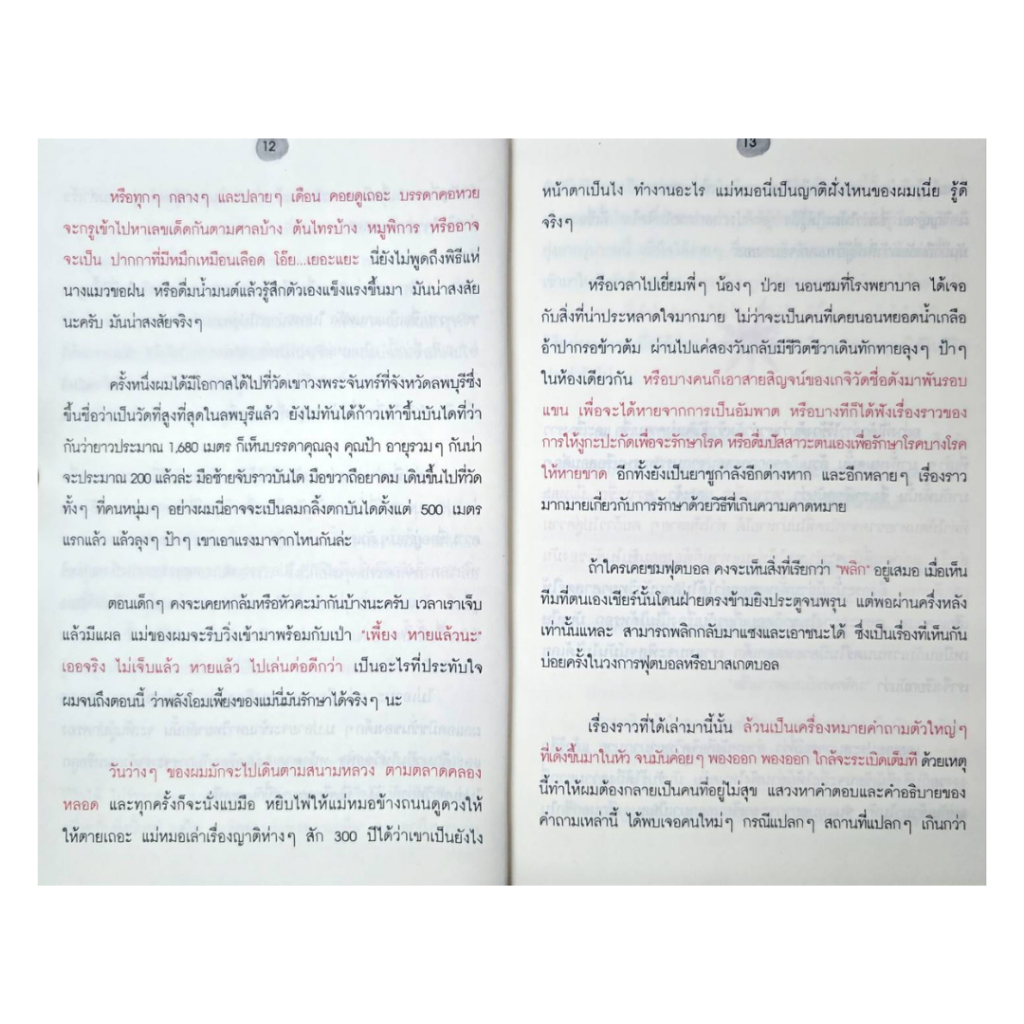 12
หรือทุกๆ กลางๆ และปลายๆ เดือน คอยดูเถอะ บรรดาคอหวย
จะกรูเข้าไปหาเลขเด็ดกันตามศาลบ้าง ต้นไทรบ้าง หมูพิการ หรืออาจ
จะเป็น ปากกาที่มีหมึกเหมือนเลือด โอ๊ย...เยอะแยะ นี่ยังไม่พูดถึงพิธีแห่
นางแมวขอฝน หรือดื่มน้ำมนต์แล้วรู้สึกตัวเองแข็งแรงขึ้นมา มันน่าสงสัย
นะครับ มันน่าสงสัยจริงๆ
ครั้งหนึ่งผมได้มีโอกาสได้ไปที่วัดเขาวงพระจันทร์ที่จังหวัดลพบุรีซึ่ง
ขึ้นชื่อว่าเป็นวัดที่สูงที่สุดในลพบุรีแล้ว ยังไม่ทันได้ก้าวเท้าขึ้นบันไดที่ว่า
กันว่ายาวประมาณ 1,680 เมตร ก็เห็นบรรดาคุณลุง คุณป้า อายุรวมๆ กันน่า
จะประมาณ 200 แล้วล่ะ มือซ้ายจับราวบันได มือขวาถือยาดม เดินขึ้นไปที่วัด
ทั้งๆ ที่คนหนุ่มๆ อย่างผมนี่อาจจะเป็นลมกลิ้งตกบันไดตั้งแต่ 500 เมตร
แรกแล้ว แล้วลุงๆ ป้าๆ เขาเอาแรงมาจากไหนกันล่ะ
ตอนเด็กๆ คงจะเคยหกล้มหรือหัวคะมำกันบ้างนะครับ เวลาเราเจ็บ
แล้วมีแผล แม่ของผมจะรีบวิ่งเข้ามาพร้อมกับเป่า "เพี้ยง หายแล้วนะ"
เออจริง ไม่เจ็บแล้ว หายแล้ว ไปเล่นต่อดีกว่า เป็นอะไรที่ประทับใจ
ผมจนถึงตอนนี้ ว่าพลังโอมเพี้ยงของแม่นี่มันรักษาได้จริงๆ นะ
วันว่างๆ ของผมมักจะไปเดินตามสนามหลวง ตามตลาดคลอง
หลอด และทุกครั้งก็จะนั่งแบมือ หยิบไพ่ให้แม่หมอข้างถนนดูดวงให้
ให้ตายเถอะ แม่หมอเล่าเรื่องญาติห่างๆ สัก 300 ปีได้ว่าเขาเป็นยังไง
13
หน้าตาเป็นไง ทำงานอะไร แม่หมอนี่เป็นญาติฝั่งไหนของผมเนี่ย รู้ดี
จริงๆ
หรือเวลาไปเยี่ยมพี่ๆ น้องๆ ป่วย นอนซมที่โรงพยาบาล ได้เจอ
กับสิ่งที่น่าประหลาดใจมากมาย ไม่ว่าจะเป็นคนที่เคยนอนหยอดน้ำเกลือ
อ้าปากรอข้าวต้ม ผ่านไปแค่สองวันกลับมีชีวิตชีวาเดินทักทายลุงๆ ป้าๆ
ในห้องเดียวกัน หรือบางคนก็เอาสายสิญจน์ของเกจิวัดชื่อดังมาพันรอบ
แขน เพื่อจะได้หายจากการเป็นอัมพาต หรือบางทีก็ได้ฟังเรื่องราวของ
การให้งูกะปะกัดเพื่อจะรักษาโรค หรือดื่มปัสสาวะตนเองเพื่อรักษาโรคบางโรค
ให้หายขาด อีกทั้งยังเป็นยาชูกำลังอีกต่างหาก และอีกหลายๆ เรื่องราว
มากมายเกี่ยวกับการรักษาด้วยวิธีที่เกินความคาดหมาย
ถ้าใครเคยชมฟุตบอล คงจะเห็นสิ่งที่เรียกว่า "พลิก" อยู่เสมอ เมื่อเห็น
ทีมที่ตนเองเชียร์นั้นโดนฝ่ายตรงข้ามยิงประตูจนพรุน แต่พอผ่านครึ่งหลัง
เท่านั้นแหละ สามารถพลิกกลับมาแซงและเอาชนะได้ ซึ่งเป็นเรื่องที่เห็นกัน
บ่อยครั้งในวงการฟุตบอลหรือบาสเกตบอล
เรื่องราวที่ได้เล่ามานี้นั้น ล้วนเป็นเครื่องหมายคำถามตัวใหญ่ๆ
ที่เด้งขึ้นมาในหัว จนมันค่อยๆ พองออก พองออก ใกล้จะระเบิดเต็มที ด้วยเหตุ
นี้ทำให้ผมต้องกลายเป็นคนที่อยู่ไม่สุข แสวงหาคำตอบและคำอธิบายของ
คำถามเหล่านี้ ได้พบเจอคนใหม่ๆ กรณีแปลกๆ สถานที่แปลกๆ เกินกว่า